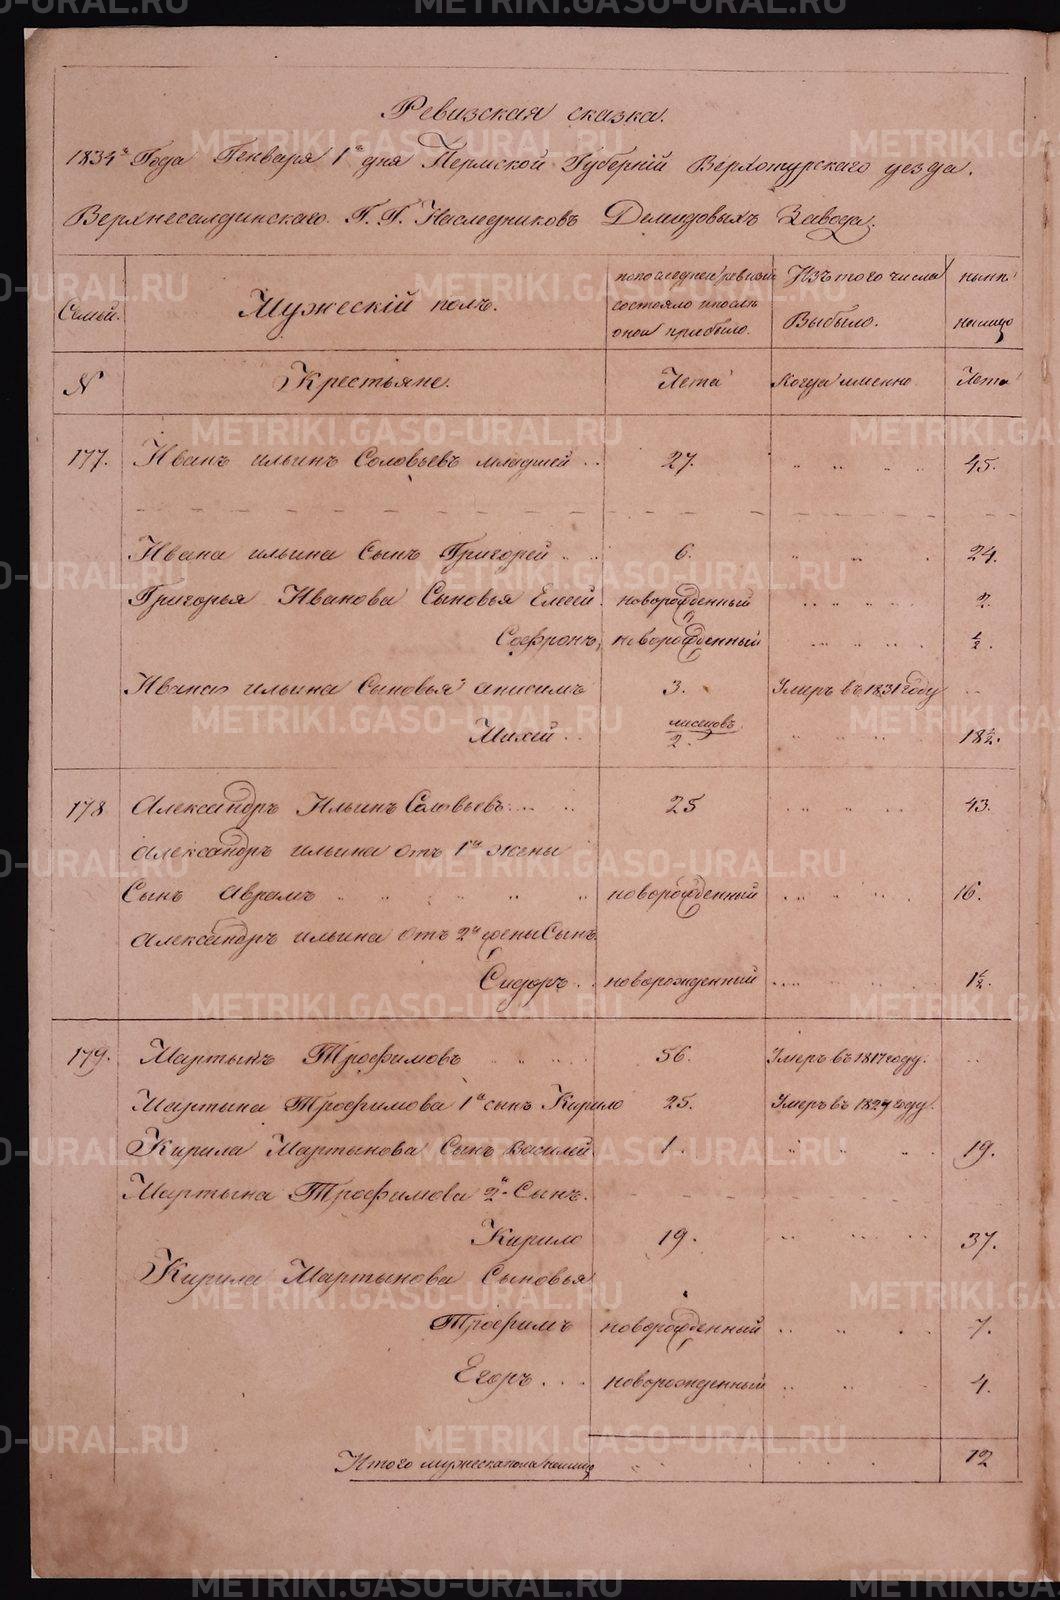 Ревизская сказка.
1834го Года Генваря 1го дня Пермской Губерній Верхотурскаго уезда.
Верхнесалдинскаго Г. Г. Наследниковъ Демидовыхъ Завода.
Семьи. Мужескій полъ. по последней ревизіи состояло и послѣ оной прибыло. Изъ того числа Выбыло. нынѣ на лицо
N Крестьяне. Лета Когда именно Лета
177. Иванъ ильинъ Соловьевъ младшей 27. 45.
Ивана ильина Сынъ Григорей 6. 24.
Григорья Иванова Сыновья Елесей новорожденный 2.
Софронъ, новорожденный 1/2.
Ивана ильина Сыновья анисимъ 3. Умеръ въ 1831 году
Михей месецовъ 2. 18 1/2.
178 Александръ Ильинъ Соловьевъ 25 43.
Александръ ильина отъ 1й жены
Сынъ Аврамъ новорожденный 16.
Александръ ильина отъ 2й жены Сынъ
Сидоръ новорожденный 1 1/2.
179. Мартынъ Трофимовъ 56. Умеръ въ 1817 году.
Мартына Трофимова 1й сынъ Кирило 25. Умеръ въ 1827 году.
Кирила Мартынова Сынъ Василей 1. 19.
Мартына Трофимова 2й Сынъ.
Кирило 19. 37.
Кирила Мартынова Сыновья
Трофимъ новорожденный 7.
Егоръ новорожденный 4.
Итого мужеска пола налицо 12
METRIKI.GASO-URAL.RU